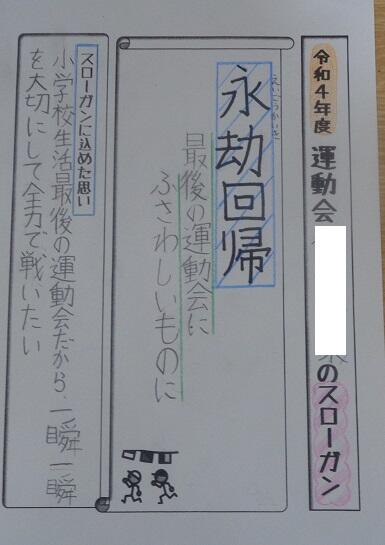 令和4年度 運動会 のスローガン
えいごうかいき
永劫回帰
最後の運動会に
ふさわしいものに
スローガンに込めた思い
小学校生活最後の運動会だから、一瞬一瞬
を大切にして全力で戦いたい